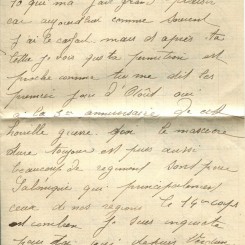 10 qui m'a fait grand plaisir
car aujourd'hui comme souvent
j'ai le cafard mais d'après ta
lettre je vois ta permission est
proche comme tu me dit les
premier jour d'Août oui
a la 3e anniversaire de cette
horrible guerre que le massacre
dure toujour est puis aussi
beaucoup de regiment sont pour
Salonique que principalement
ceux de nos régions le 14e corps
est combien Je suis inquiète